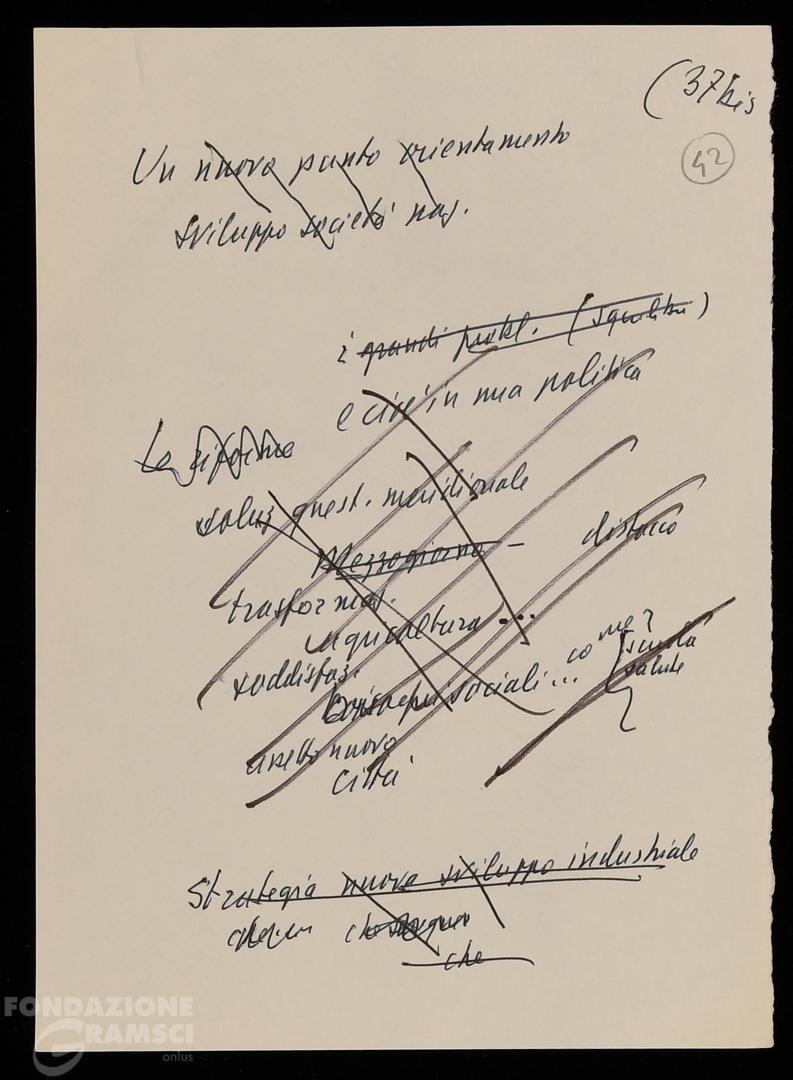 (37bis
42
Un nuovo punto orientamento
sviluppo società naz.
i grandi probl. (squilibri)
e cioè in una politica
Le riforme
soluz quest. meridionale
Mezzogiorno –
distacco
trasformaz.
agricoltura ...
soddisfaz.
bisogni sociali ... come?
(scuola
salute
assetto nuovo
città
Strategia nuovo sviluppo industriale
che
FONDAZIONE
GRAMSCI
onlus